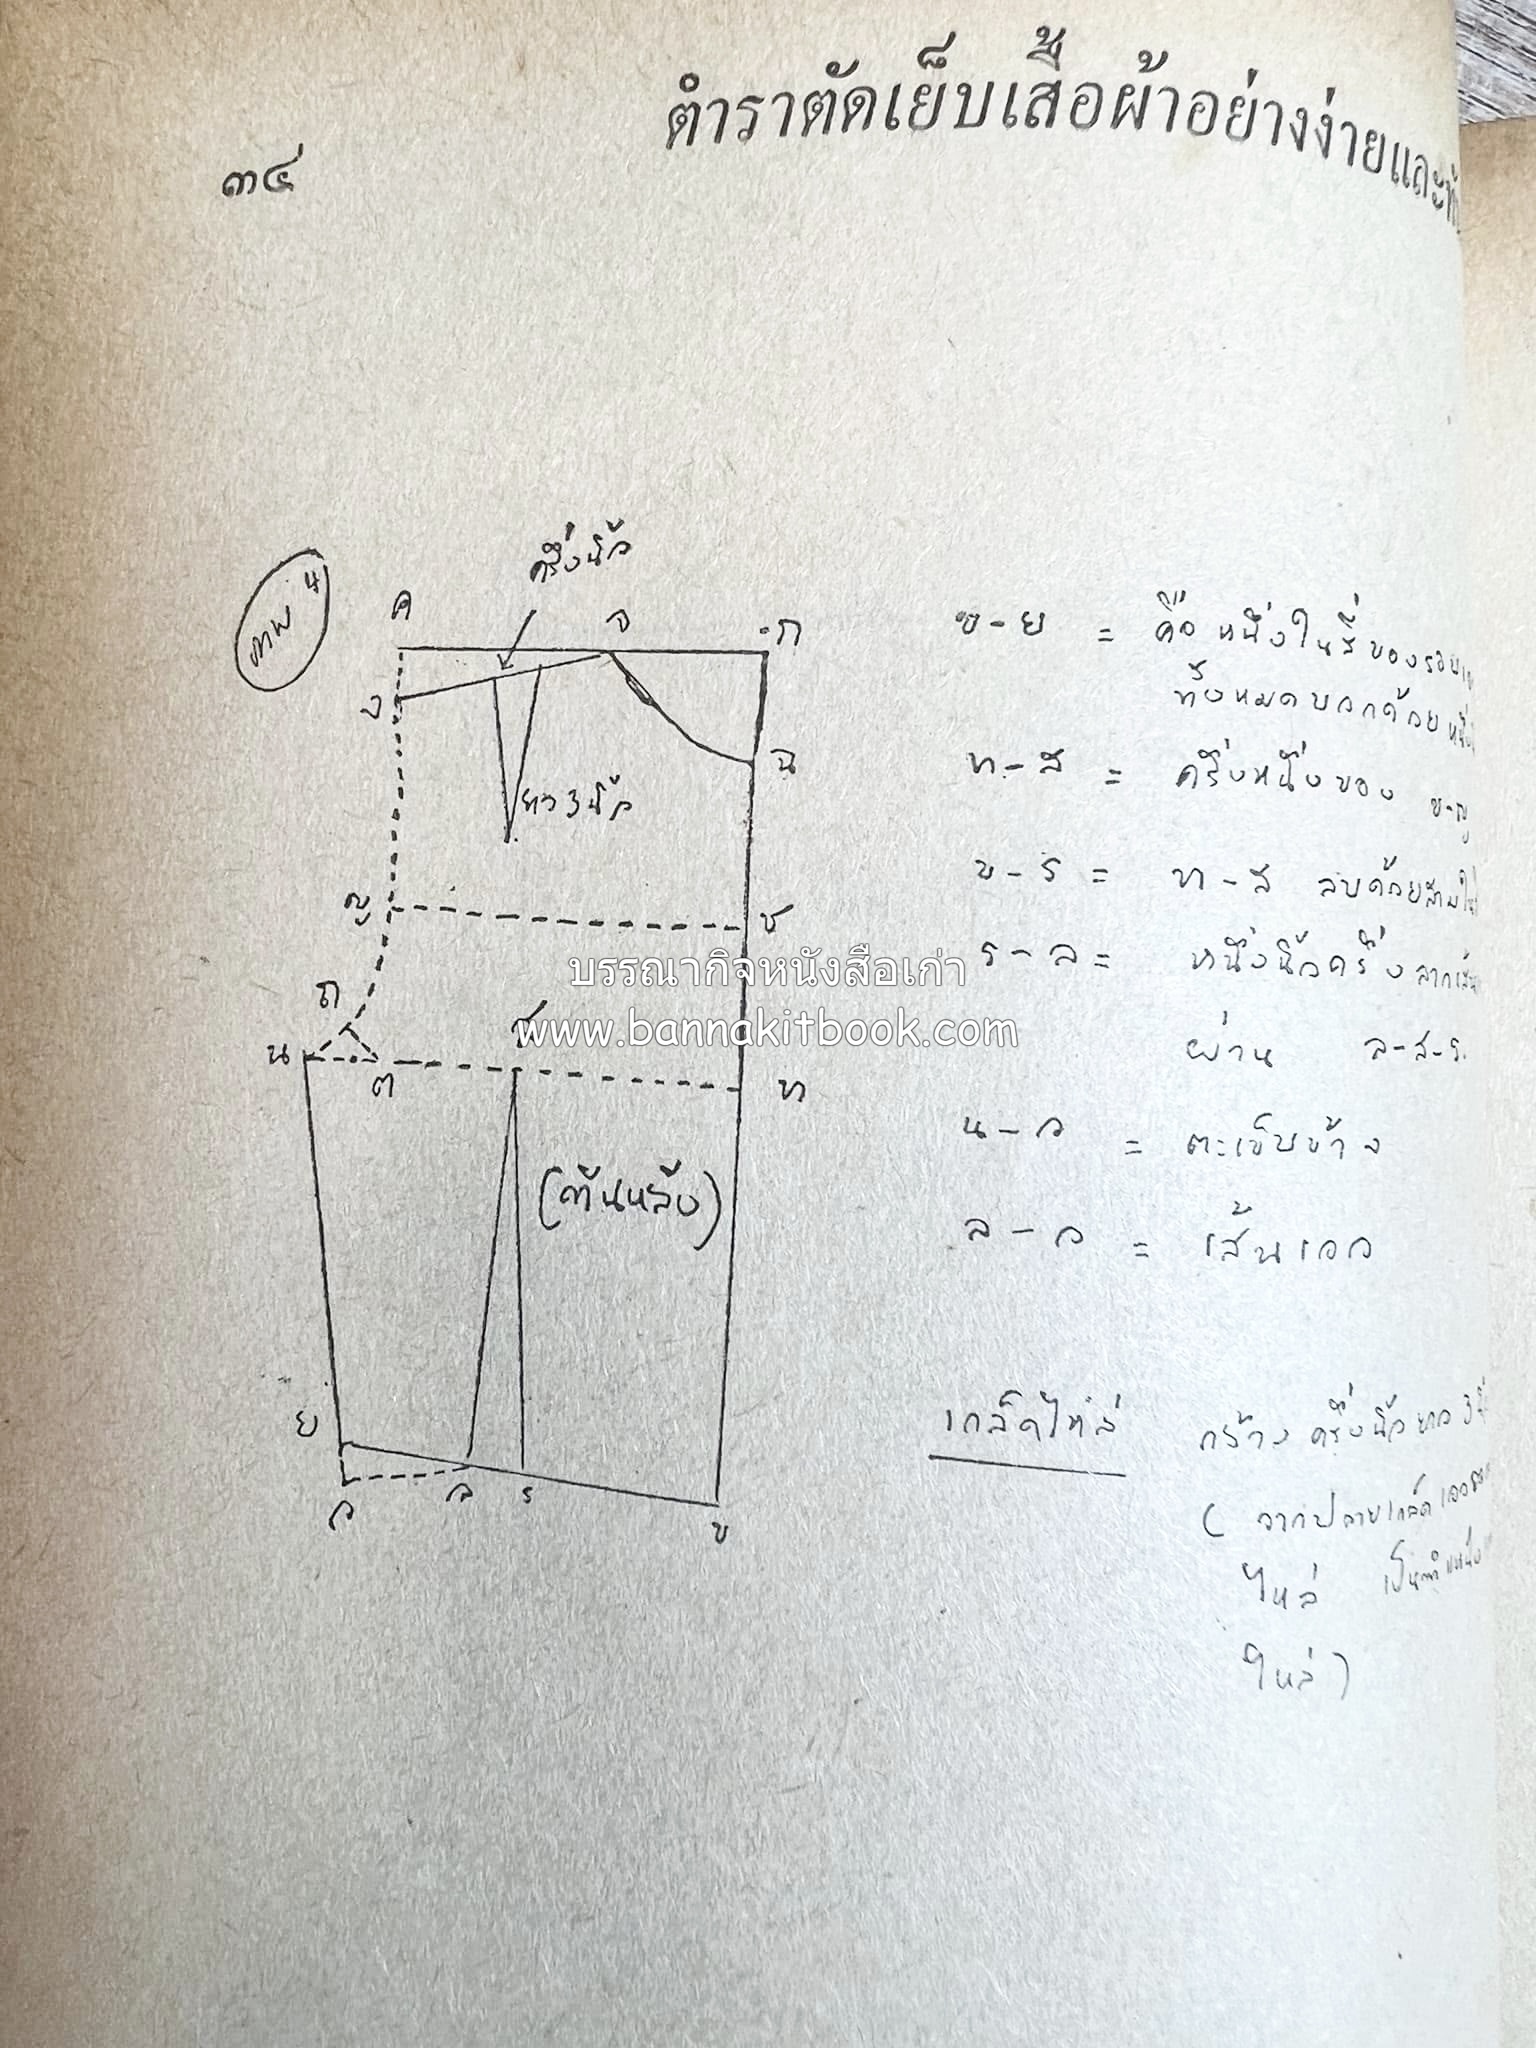 ตำราตัดเย็บเสื้อผ้าอย่างง่ายและ
๓๔
ภาพ 4
ครึ่งนิ้ว
ค
จ
ก
ง
ฉ
ยาว 3 นิ้ว
ญ
ช
ถ
น
ต
ส
ท
(ด้านหลัง)
ย
ว
ล
ร
ข
ข - ย = คือ หนึ่งในสี่ของรอบ
ทั้งหมดบวกด้วย
ท - ส = ครึ่งหนึ่งของ ช-ญ
ข - ร = ท - ส ลบด้วย
ร - ล = หนึ่งนิ้วครึ่ง
ผ่าน ล-ส-ร.
น - ว = ตะเข็บข้าง
ล - ว = เส้นเอว
เกล็ดไหล่ กว้าง ครึ่งนิ้ว ยาว 3
( จากปลายเกล็ดเอว
ไหล่
ไหล่ )
บรรณากิจหนังสือเก่า
www.bannakitbook.com